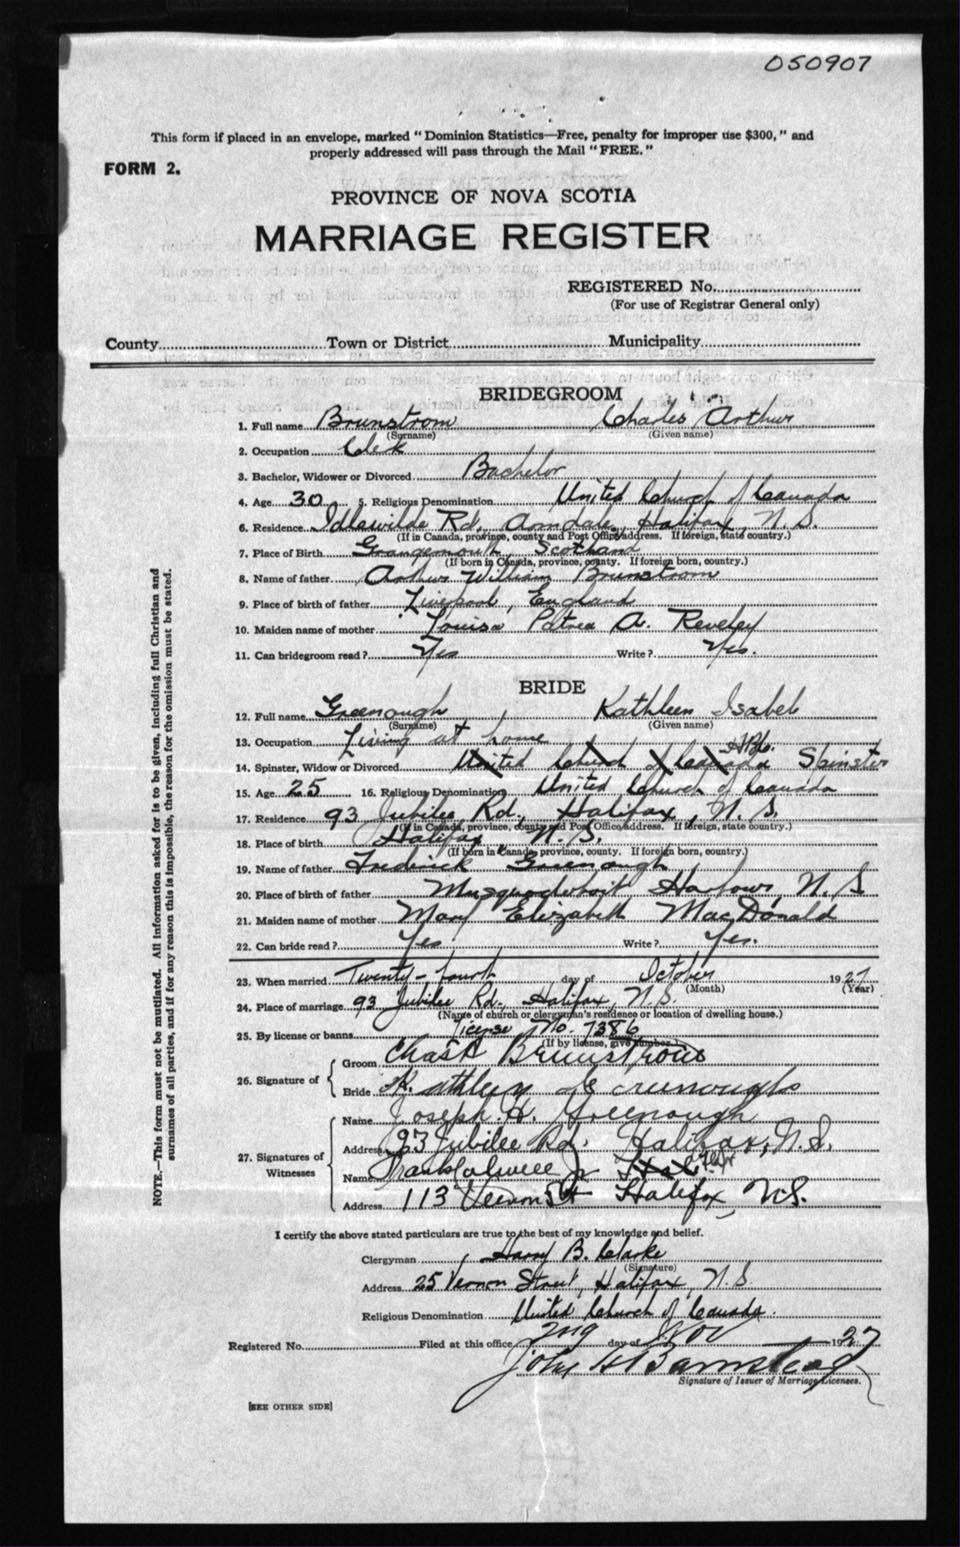 050907
This form if placed in an envelope, marked "Dominion Statistics—Free, penalty for improper use $300," and
properly addressed will pass through the Mail "FREE."
FORM 2.
PROVINCE OF NOVA SCOTIA
MARRIAGE REGISTER
REGISTERED No.
(For use of Registrar General only)
County Town or District Municipality
BRIDEGROOM
1. Full name Brunstrom Charles Arthur
(Surname) (Given name)
2. Occupation Clerk
3. Bachelor, Widower or Divorced Bachelor
4. Age 30 5. Religious Denomination United Church of Canada
6. Residence Idlewilde Rd, Armdale, Halifax, N.S.
(If in Canada, province, county and Post Office address. If foreign, state country.)
7. Place of Birth Grangemouth, Scotland
(If born in Canada, province, county. If foreign born, country.)
8. Name of father Arthur William Brunstrom
9. Place of birth of father Liverpool, England
10. Maiden name of mother Louisa A. Reveley
11. Can bridegroom read? Yes Write? Yes.
BRIDE
12. Full name Greenough Kathleen Isabel
(Surname) (Given name)
13. Occupation Living at home
14. Spinster, Widow or Divorced United Church of Canada HBC. Spinster
15. Age 25 16. Religious Denomination United Church of Canada
17. Residence 93 Jubilee Rd, Halifax, N.S.
(If in Canada, province, county and Post Office address. If foreign, state country.)
18. Place of birth Halifax, N.S.
(If born in Canada, province, county. If foreign born, country.)
19. Name of father Frederick Greenough
20. Place of birth of father Musquodoboit Harbour, N.S
21. Maiden name of mother Mary Elizabeth MacDonald
22. Can bride read? Yes Write? Yes.
23. When married Twenty-fourth day of October 1927
(Month) (Year)
24. Place of marriage 93 Jubilee Rd., Halifax, N.S.
(Name of church or clergyman's residence or location of dwelling house.)
25. By license or banns License No. 7386
(If by license, give number.)
26. Signature of Groom Chas A Brunstrom
Bride Kathleen I Greenough
27. Signatures of Witnesses
Name Joseph H. Greenough
Address 93 Jubilee Rd. Halifax, N.S.
Name Frank Jr
Address 113 Vernon St Halifax, N.S.
I certify the above stated particulars are true to the best of my knowledge and belief.
Clergyman Harry B. Clarke
(Signature)
Address 25 Vernon Street, Halifax, N.S
Religious Denomination United Church of Canada.
Registered No. Filed at this office 2nd day of Nov 1927
John H Barnstead
Signature of Issuer of Marriage Licenses.
[SEE OTHER SIDE]
NOTE.—This form must not be mutilated. All information asked for is to be given, including full Christian and
surnames of all parties, and if for any reason this is impossible, the reason for the omission must be stated.